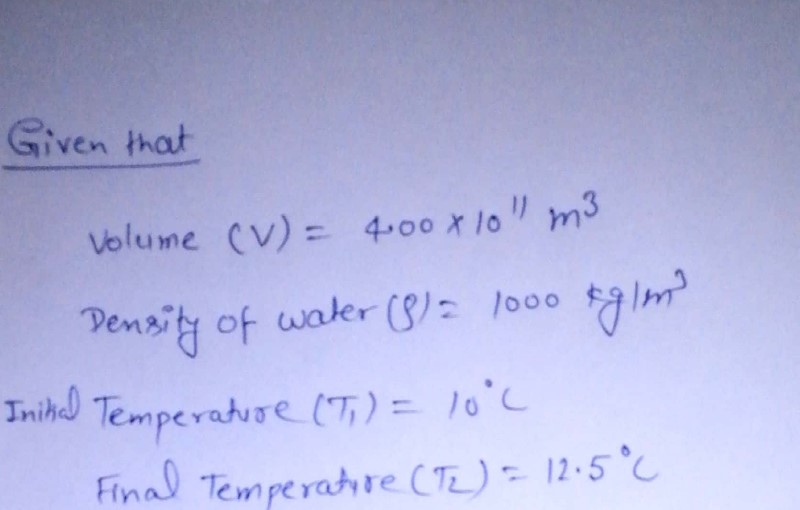 Given that
Volume (V) = 4.00 x 10¹¹ m³
Density of water (ρ) = 1000 kg/m³
Initial Temperature (T₁) = 10°C
Final Temperature (T₂) = 12.5°C